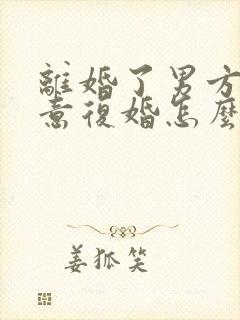 離婚了男方
意復婚怎麼
姜狐笑